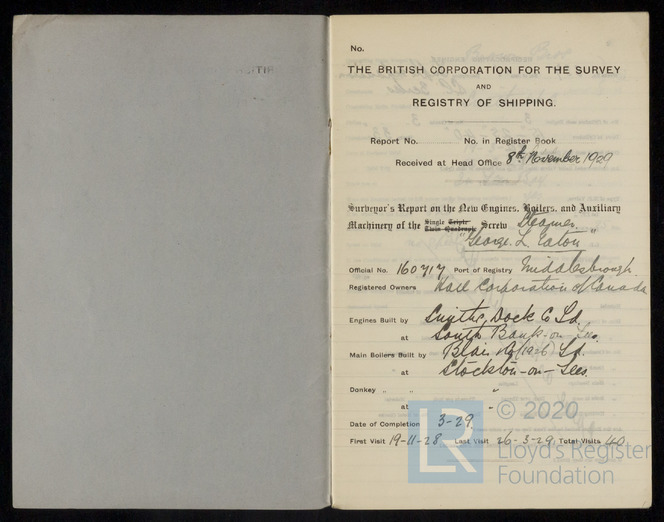 No.
THE BRITISH CORPORATION FOR THE SURVEY
AND
REGISTRY OF SHIPPING.
Report No. No. in Register Book
Received at Head Office 8th November 1929
Surveyor's Report on the New Engines, Boilers, and Auxiliary
Machinery of the Single Triple Twin Quadruple Screw Steamer
"George L. Eaton"
Official No. 160717 Port of Registry Middlesbrough
Registered Owners Hall Corporation of Canada
Engines Built by Smiths Dock Co Ld.
at South Bank-on-Tees.
Main Boilers Built by Blair & Co (1926) Ld.
at Stockton-on-Tees
Donkey " " "
at "
Date of Completion 3-29.
First Visit 19-11-28 Last Visit 26-3-29 Total Visits 40
LR © 2020
Lloyd's Register
Foundation